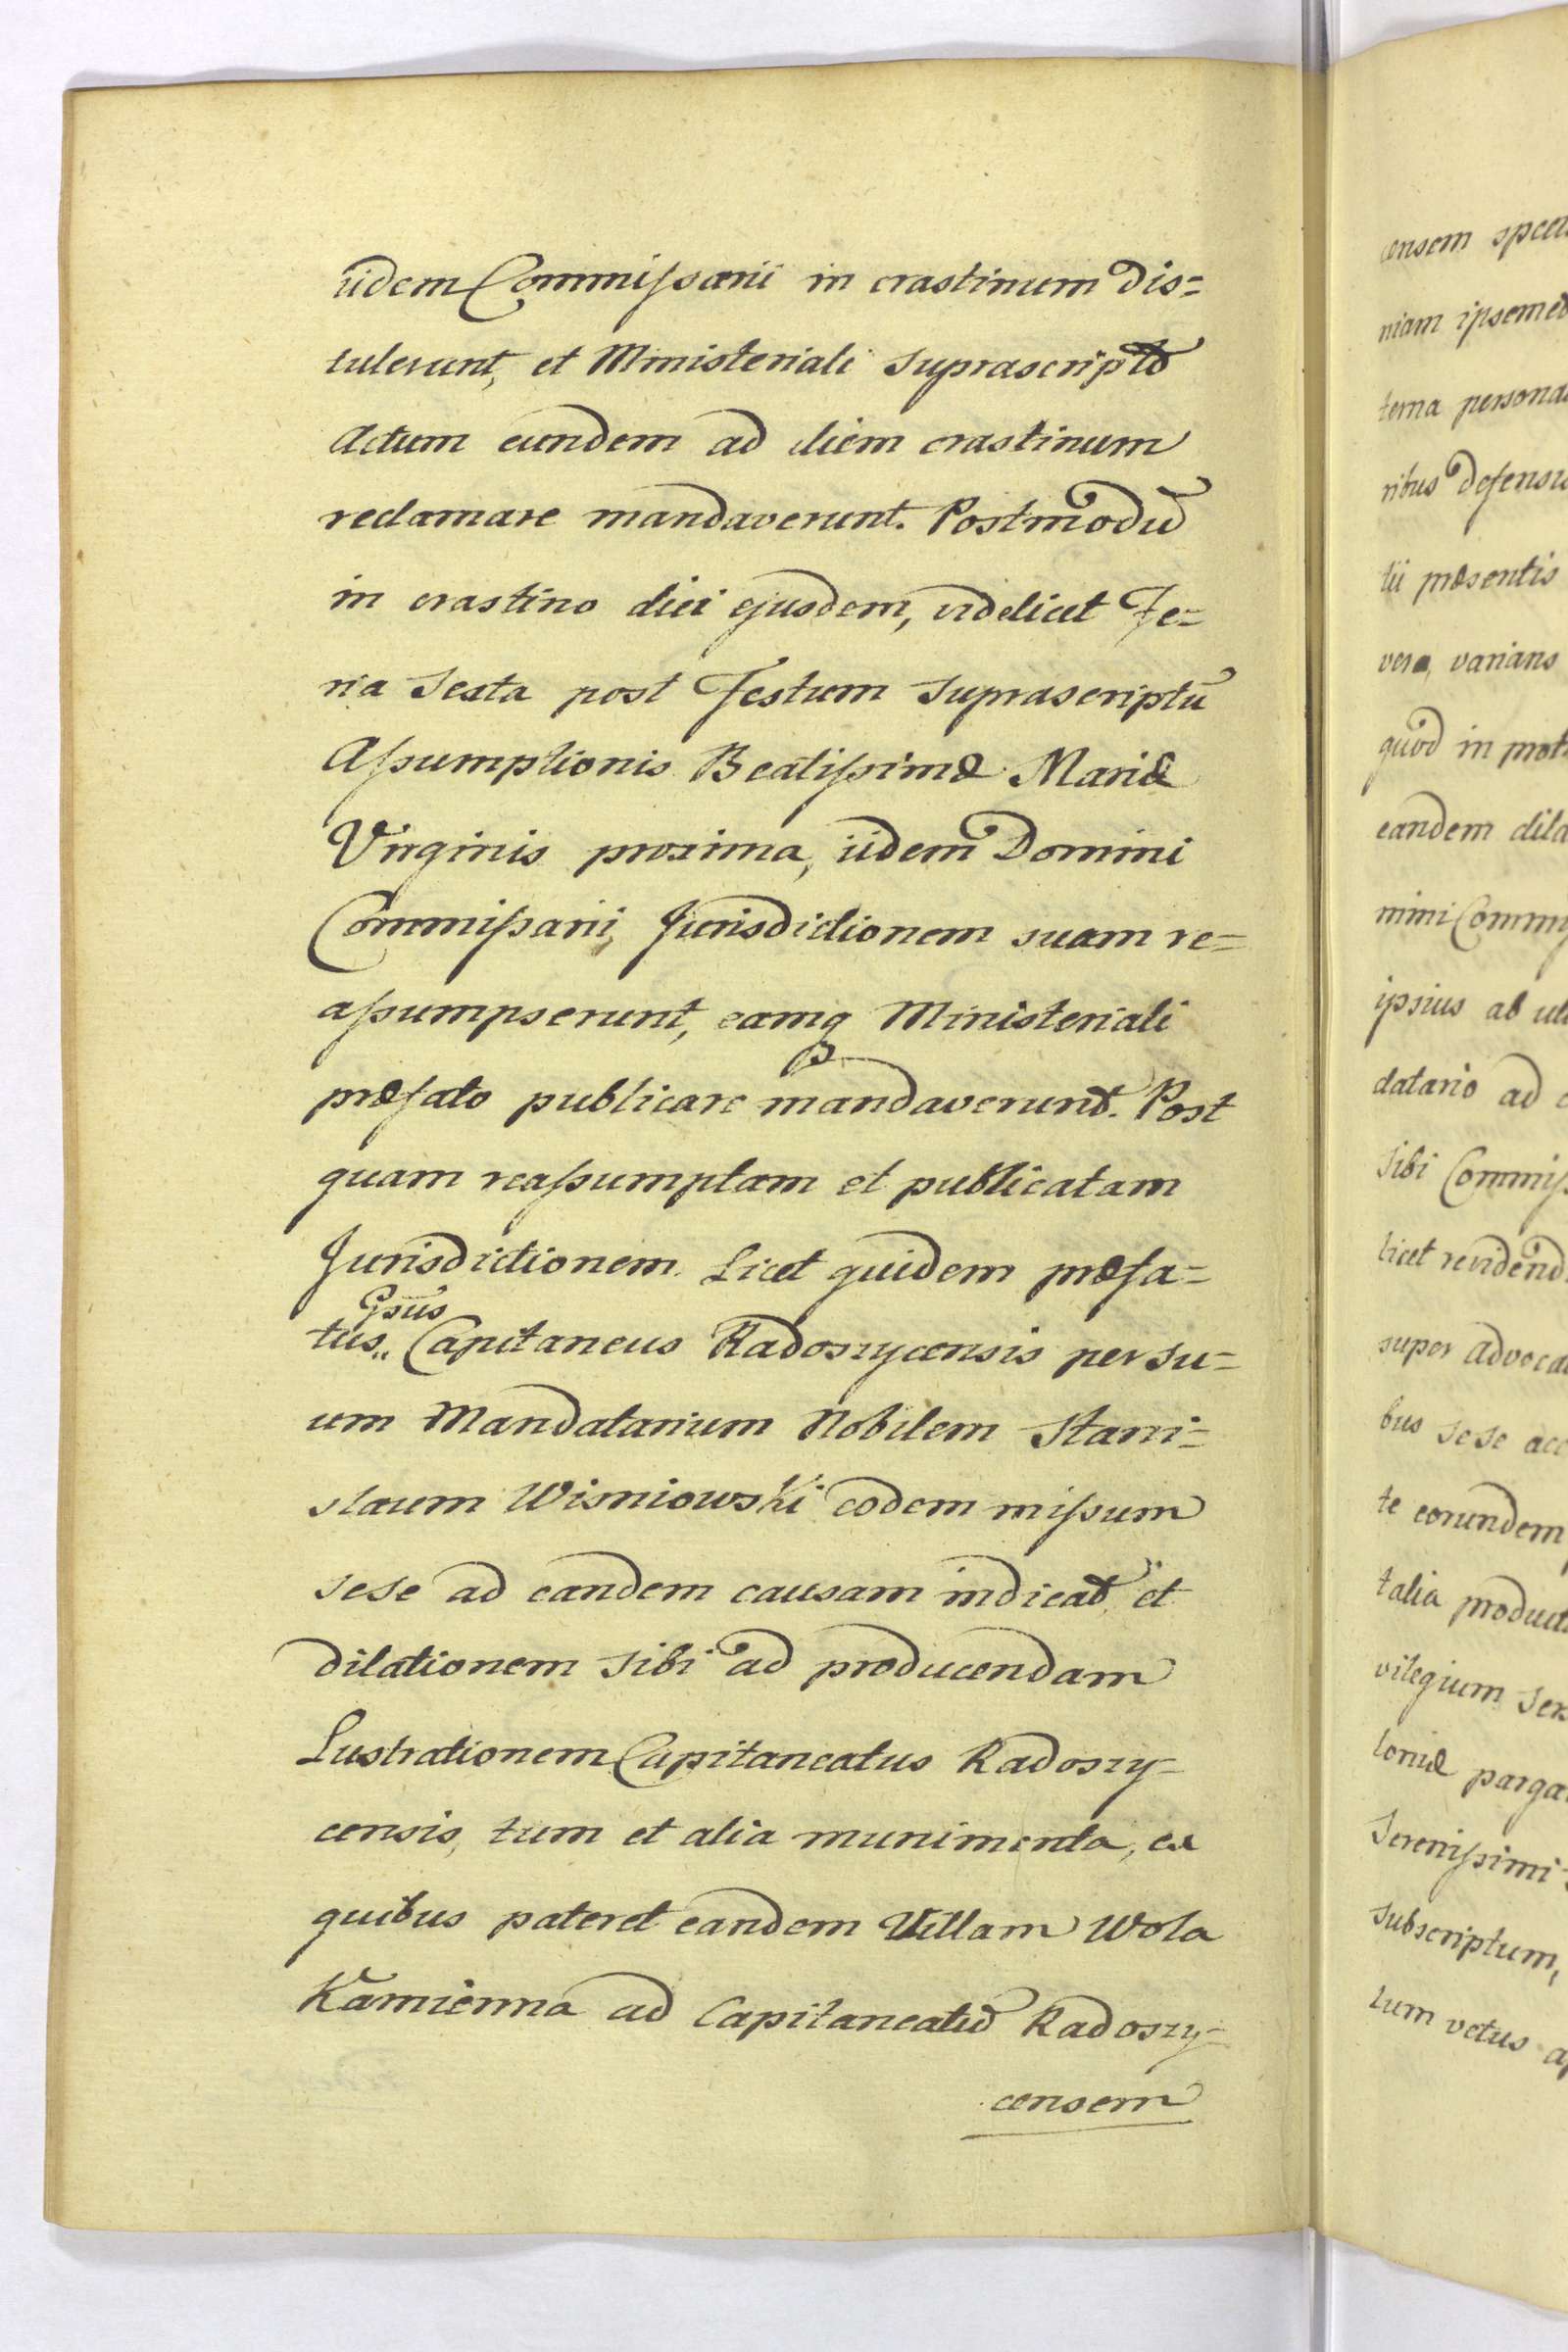 iidem Commissarii in crastinum dis=
tulerunt, et Ministeriali suprascripto
Actum eundem ad diem crastinum
reclamare mandaverunt. Postmodũ
in crastino diei ejusdem, videlicet Fe=
ria Sexta post Festum suprascriptũ
Assumptionis Beatissimæ Mariæ
Virginis proxima, iidem Domini
Commissarii, Jurisdictionem suam re=
assumpserunt, eamq Ministeriali
præfato publicare mandaverunt. Post
quam reassumptam et publicatam
Jurisdictionem. Licet quidem præfa=
Gsus
tus,, Capitaneus Radoszycensis per su=
um Mandatarium Nobilem Stani=
slaum Wisniowski eodem missum
sese ad eandem causam indicat et
dilationem sibi ad producendam
Lustrationem Capitaneatus Radoszy=
censis, tum et alia munimenta, ex
quibus pateret eandem Villam Wola
Kamienna ad Capitaneatũ Radoszy=
censem
censem
niam
terna
ribus
tii præsentis
vero, varians
quod in
eandem
mini
ipsius ab
datario ad
sibi
licet
super
bus sese
te eorundem
talia
vilegium
loniæ
Serenissimi
subscriptum,
tum vetus